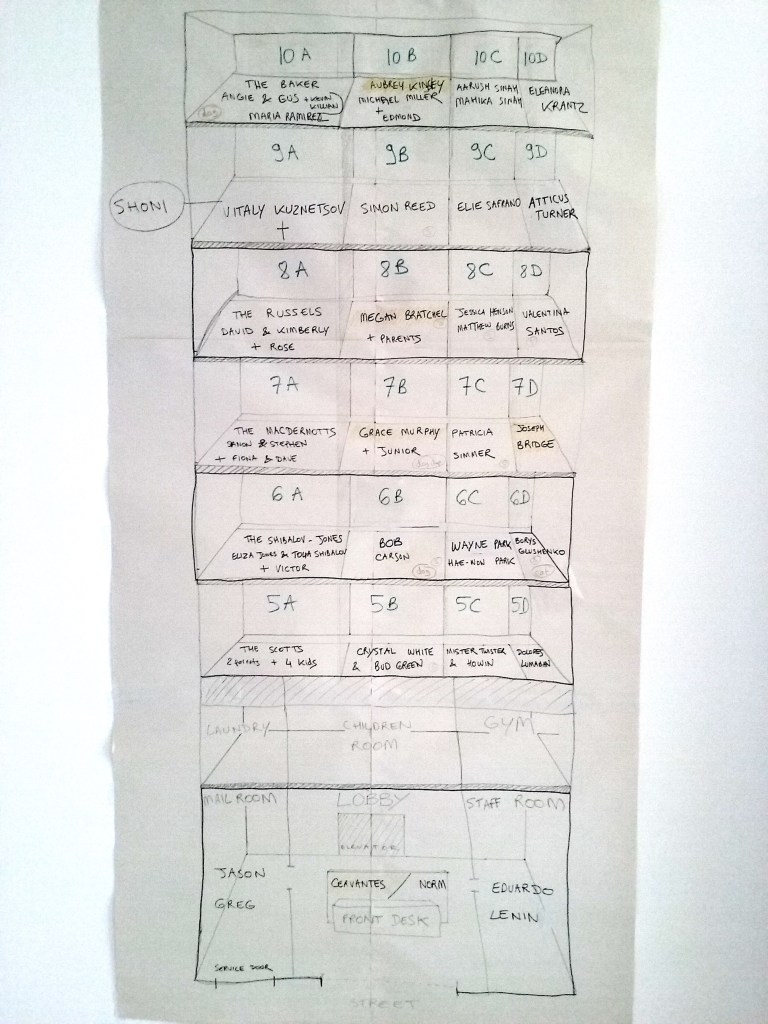 10A 10B 10C 10D
THE BAKER
ANGIE & GUS + KEVIN KILLIAN
MARIA RAMIREZ
AUBREY KINSEY
MICHAEL MILLER
+
EDMOND
AARUSH SINAH
MAHIKA SINAH
ELEANORA
KRANTZ
9A 9B 9C 9D
SHONI
VITALY KUZNETSOV
†
SIMON REED
ELIE SAFRANO
ATTICUS
TURNER
8A 8B 8C 8D
THE RUSSELS
DAVID & KIMBERLY
+ ROSE
MEGAN BRATCHEL
+ PARENTS
JESSICA HENSON
MATTHEW BURNS
VALENTINA
SANTOS
7A 7B 7C 7D
THE MACDERMOTTS
SIMON & STEPHEN
+ FIONA & DAVE
GRACE MURPHY
+ JUNIOR
PATRICIA
SIMMER
JOSEPH
BRIDGE
6A 6B 6C 6D
THE SHIBALOV-JONES
ELIZA JONES & TOLYA SHIBALOV
+ VICTOR
BOB
CARSON
dog
WAYNE PARK
HAE-WON PARK
BORYS
GLUSHENKO
5A 5B 5C 5D
THE SCOTTS
2 parents + 4 KIDS
CRYSTAL WHITE
& BUD GREEN
MISTER TWISTER
& HOWIN
DOLORES
LUMABAN
LAUNDRY
CHILDREN
ROOM
GYM
MAIL ROOM
LOBBY
STAFF ROOM
ELEVATOR
JASON
GREG
CERVANTES / NORM
FRONT DESK
EDUARDO
LENIN
SERVICE DOOR
STREET